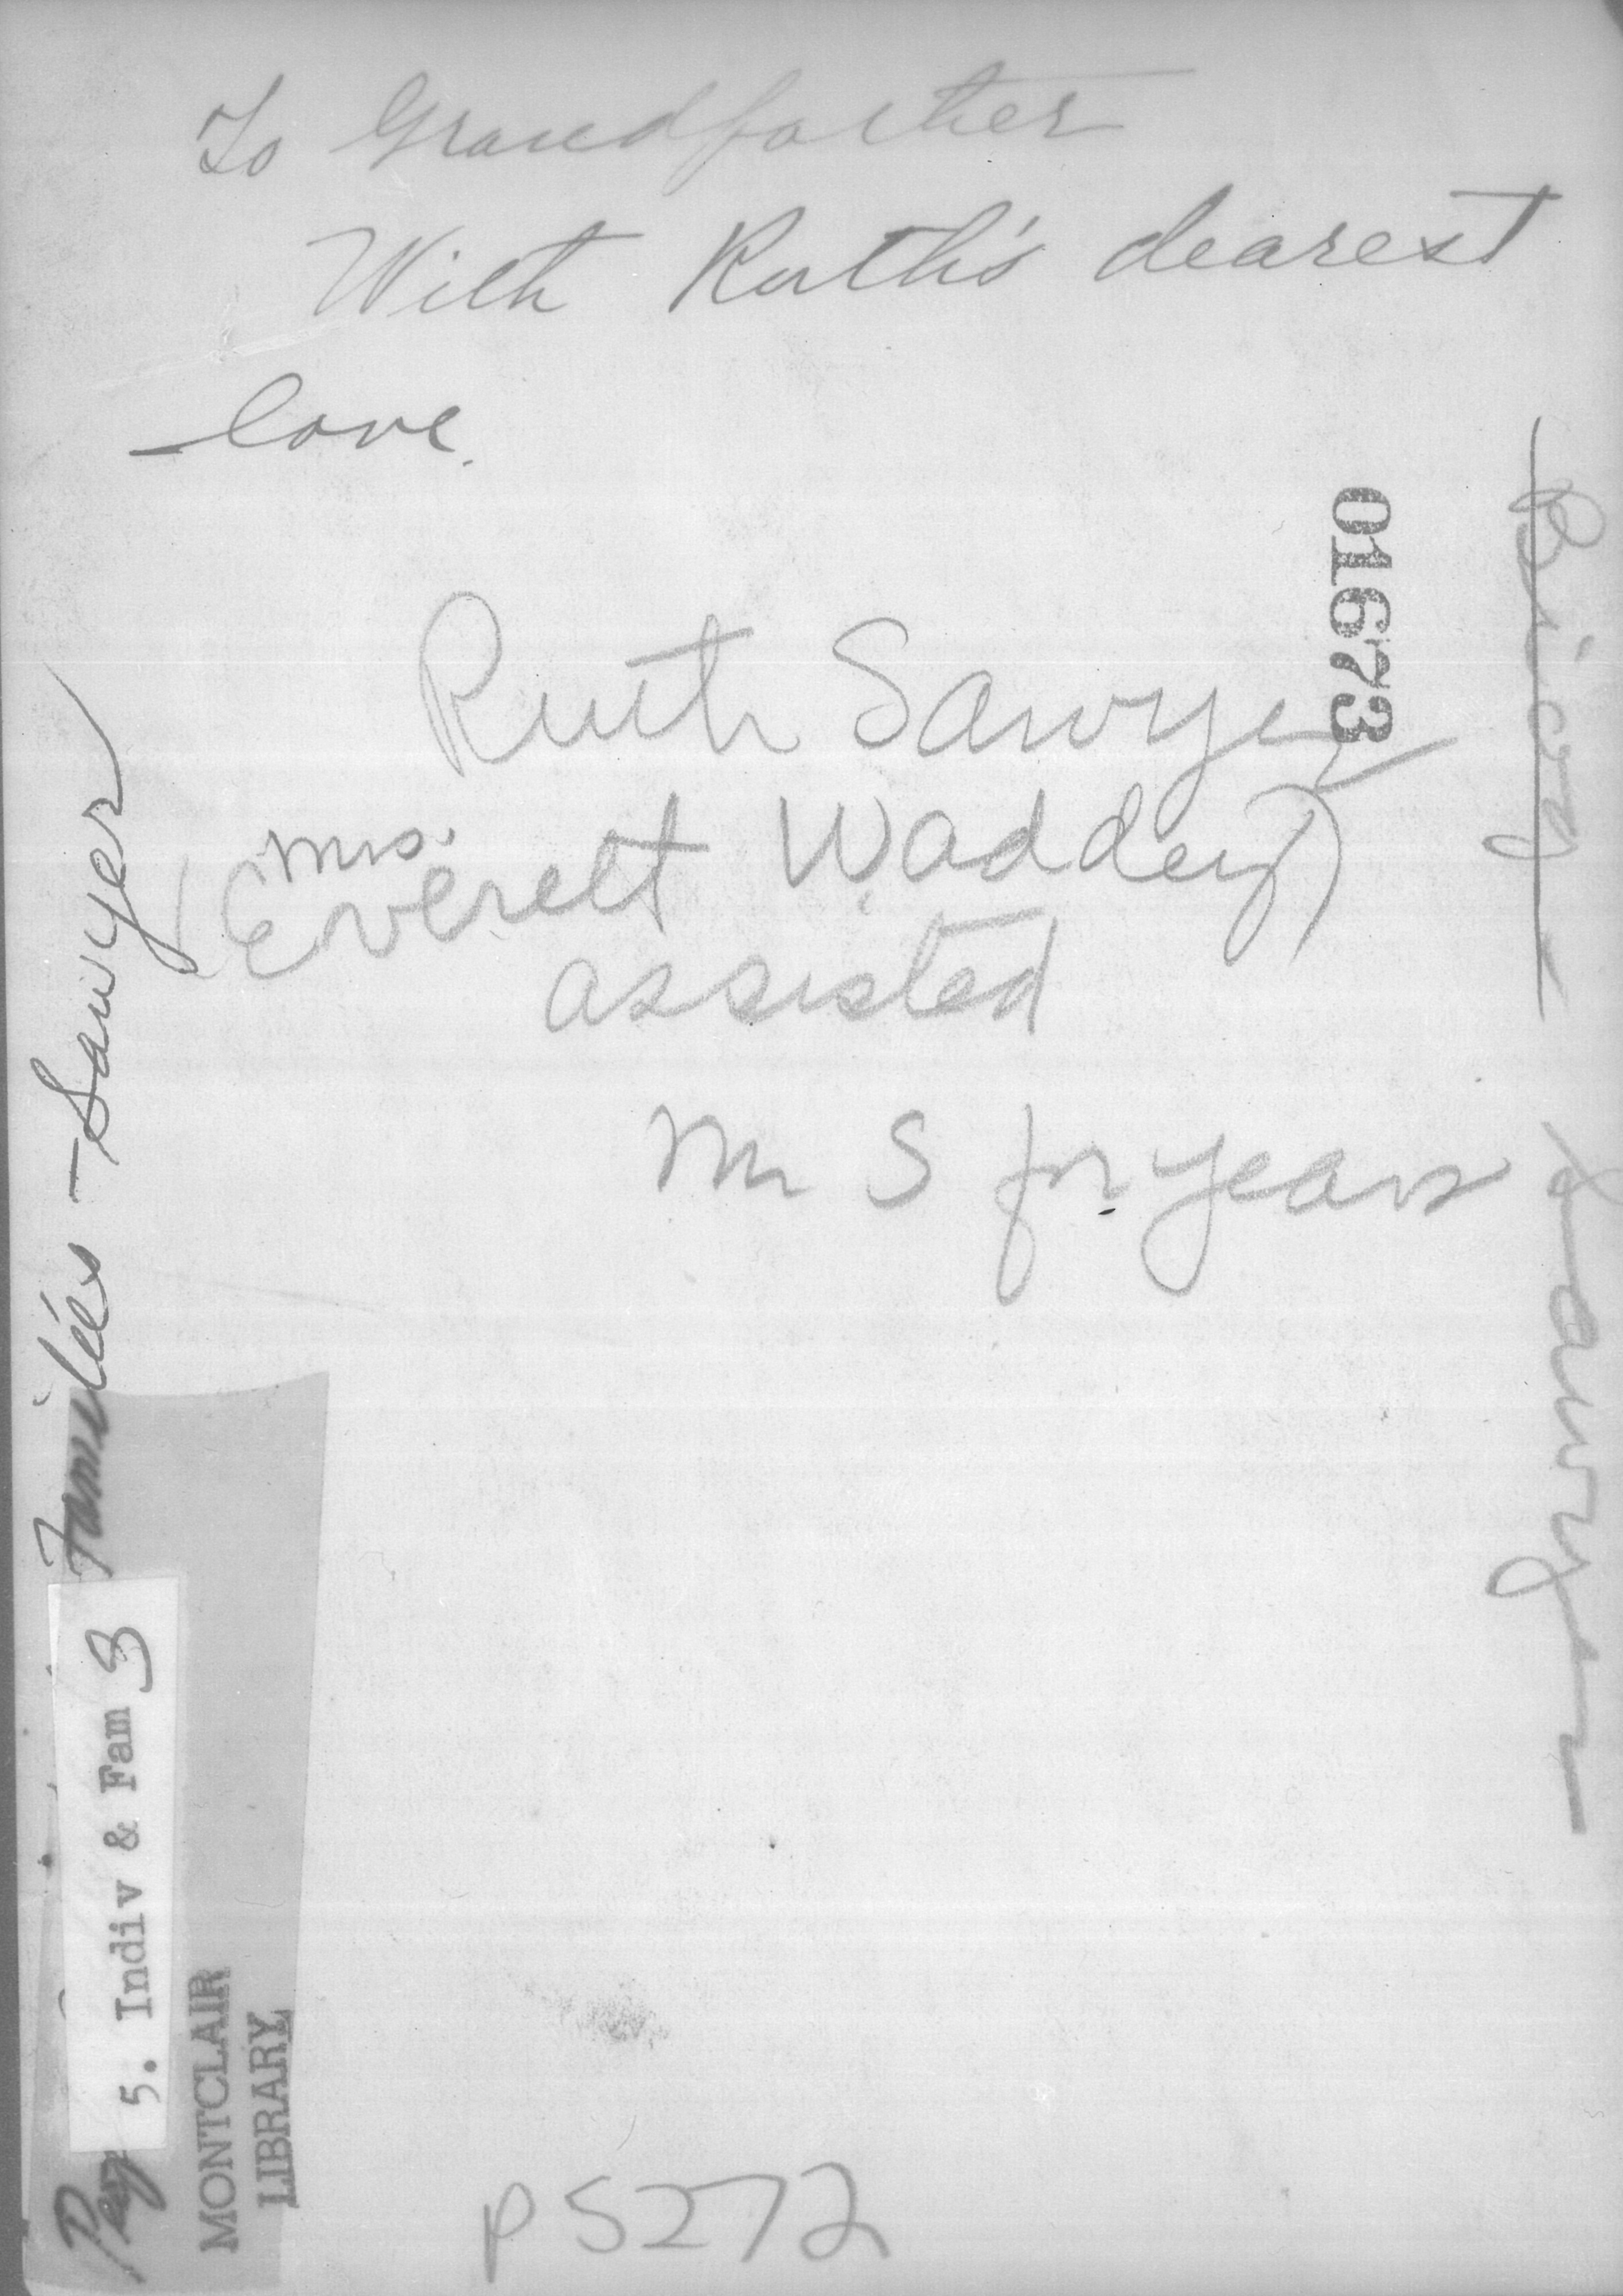 To Grandfather
With Ruth's dearest
love.
01673
Ruth Sawyer
(Mrs.
Everett Waddey)
assisted
Mr S for years
Biog
Sawyer
Families - Sawyer
5. Indiv & Fam 3
MONTCLAIR
LIBRARY
P5272